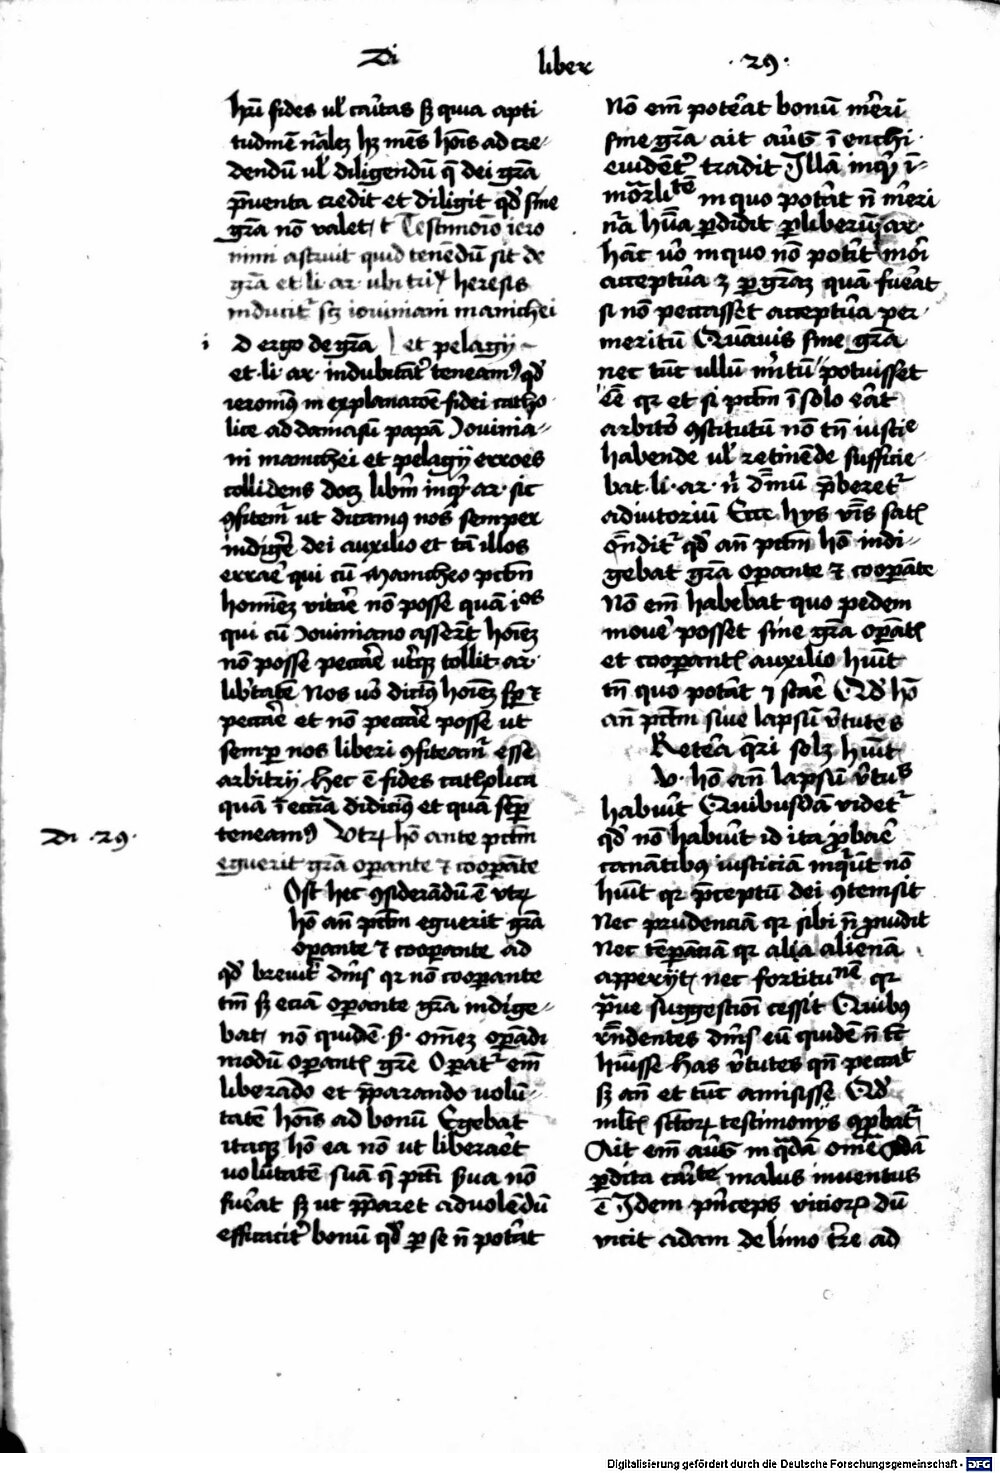 Di liber .29.
hrī fides ul' caritas sz quia apti
tudinē nālez hz mēs hoīs ad cre
dendū ul' diligendū q̄ dei grā
p̄venta credit et diligit qd' sine
grā nō valet Testimōio iero
nimi astruit quid tenendū sit de
grā et li ar ubi triꝝ heresis
inducit' scz iouiniani manichei
i d ergo de grā et pelagij
et li ar indubitāt' teneamꝰ qd'
ieronimꝰ in explanacōe fidei catho
lice ad damasū papā Jouinia
ni manichei et pelagij erroes
collidens docz libm inq̄ ar sic
ꝯfitem̄ ut dicamꝰ nos semper
indigē dei auxilio et tā illos
errae qui cū Manicheo pctm̄
hominez vitāe nō posse quam ios
qui cū Jouiniano asserēt hoīez
nō posse peccāe ut'qz tollit ar
lib'tatē Nos uō dicimꝰ hoīez sp̄ ⁊
peccāe et nō peccāe posse ut
semp nos liberi ꝯfiteam̄ esse
arbitrij Hec ē fides catholica
quā ī ecc'ia didicimꝰ et quā semp̄
teneamꝰ Vtrꝝ hō ante pctm̄
Di .29.
eguerit grā opante ⁊ coopāte
Ost hec ꝯsiderandū ē vtrꝝ
hō an̄ pctm̄ eguerit grā
opante ⁊ coopante ad
qd' breuit' dm̄s qr nō coopante
tm̄ sz eciā opante grā indige
bat nō quidē omēz opādi
modū opantis grē Opat' em̄
liberādo et p̄parando volū
tatē hoīs ad bonū Egebat
itaqz hō ea nō ut liberaēt
volūtatē suā q̄ pcti s'ua nō
fuēat sz ut p̄paret ad volēdū
efficacit' bonū qd' p se n̄ potāt
Nō em̄ potēat bonū m̄eri
sine grā ait aug' ī enchi
euidēt' tradit Illā inq̄ ī
mōrlitatē in quo potāt n̄ m̄eri
nā hūa pdidit p liberū ar
hāc uō in quo nō potit mōri
acceptūa ⁊ p grāz quā fuēat
si nō peccasset acceptūa per
meritū Quāuis sine grā
nec tūc ullū m̄tū potuisset
ēē qr et si pctm̄ ī solo eāt
arbitō ꝯstitutū nō tn̄ iusticie
habende ul' retinēde sufficie
bat li ar n̄ dīnū p̄beret'
adiutoriū Ecce hijs v'bis satis
ōndit' qd' an̄ pctm̄ hō indi
gebat grā opante ⁊ coopāte
Nō em̄ habebat quo pedem
moue posset sine grā opātis
et coopantis auxilio hūit
tn̄ quo potāt ⁊ stāe Qd' hō
an̄ pctm̄ siue lapsū v'tutes
Retēa q̄ri solz hūit
v. hō an̄ lapsū v'tus
habūit Quibusdā videt'
qd' nō habūit id ita p̄bāe
conātibꝰ iusticiā inq̄ūt nō
hūit qr p̄ceptū dei ꝯtemsit
Nec prudenciā qr sibi n̄ p̄uidit
Nec tēpāciā qr alia alienā
appecijt nec fortitudinē qr
p̄ue suggestioni cessit Quibꝰ
rn̄dentes dīmꝰ eū quidē n̄ tūc
hūisse has v'tutes qn̄ peccat
sz an̄ et tūc amisisse Qd'
mltis sctorꝝ testimonijs ꝯprobat'
Ait em̄ aug' in q̄dā omēl' adā
pdita cāitate malus inuentus
ē Idem p̄nceps viciorꝝ dū
vicit adam de limo t're ad
Digitalisierung gefördert durch die Deutsche Forschungsgemeinschaft - DFG